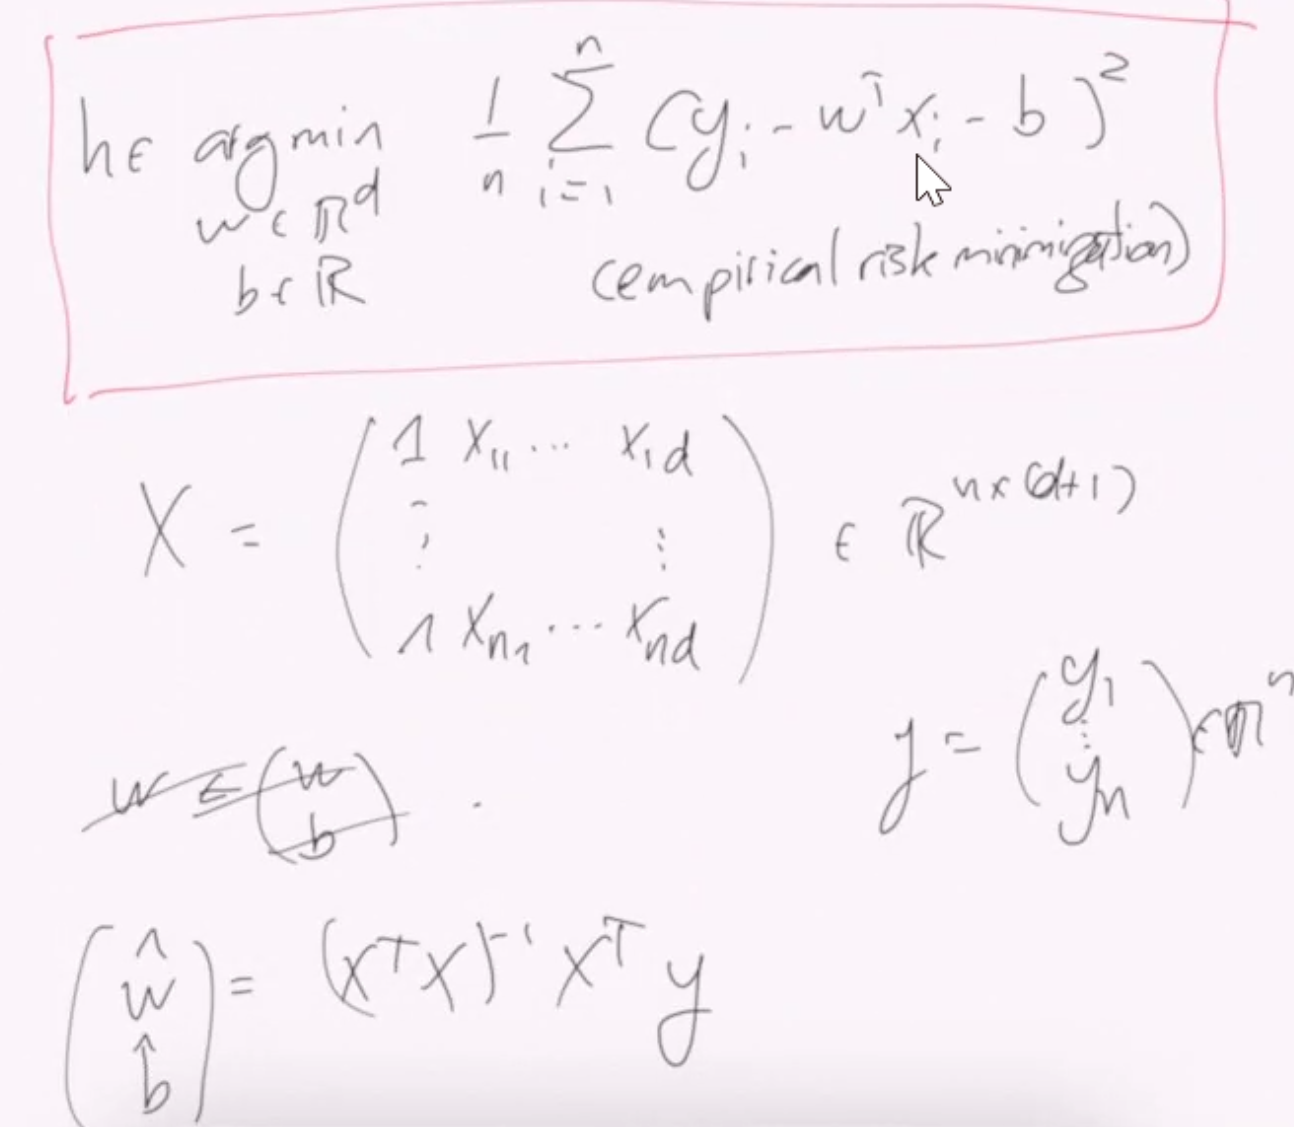 h ∈ argmin 1/n ∑_{i=1}^{n} (y_i - w^T x_i - b)^2
w ∈ ℝ^d
b ∈ ℝ (empirical risk minimization)
X = ( 1 x_{11} ... x_{1d} ; ⋮ ⋮ ; 1 x_{n1} ... x_{nd} ) ∈ ℝ^{n×(d+1)}
y = ( y_1 ⋮ y_n ) ∈ ℝ^n
w ≤ ( w b ) .
( ŵ b̂ ) = (X^T X)^{-1} X^T y